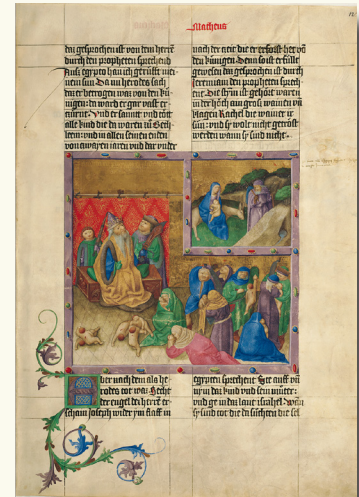 Matheus
den gesprochen ist von dem herrn
durch den propheten sprechend
Auß egypto han ich gerüfft mei-
nem sun Da nu herodes sach
das er betrogen was von den kü-
nigen: da ward er gar vast er-
zürnt. Vnd er sannt vnd tött
alle kind die da waren zu Beth-
leem: vnd in allen seinen enden
von zwayen iaren vnd dar vnder
nach der zeit die er erfoscht het von
den künigen. Denn so ist erfüllt
gewesen das gesprochen ist durch
Jeremiam den propheten sprech-
ent: Die stym ist gehört waren
in der höch ain gros wainen vn
klagen Rachel die wainet ir
sün: vnd sy wolt nicht getröst
werden wann sy sind nicht.
Aber nach dem als he-
rodes tot was: Secht
der engel des herrn er-
schain Joseph wider ym slaff in
egypten sprechent Stee auff vn
nym das kind vnd sein muter:
vnd gee in das lant israhel: wan
sy sind tot die da suchten die sel